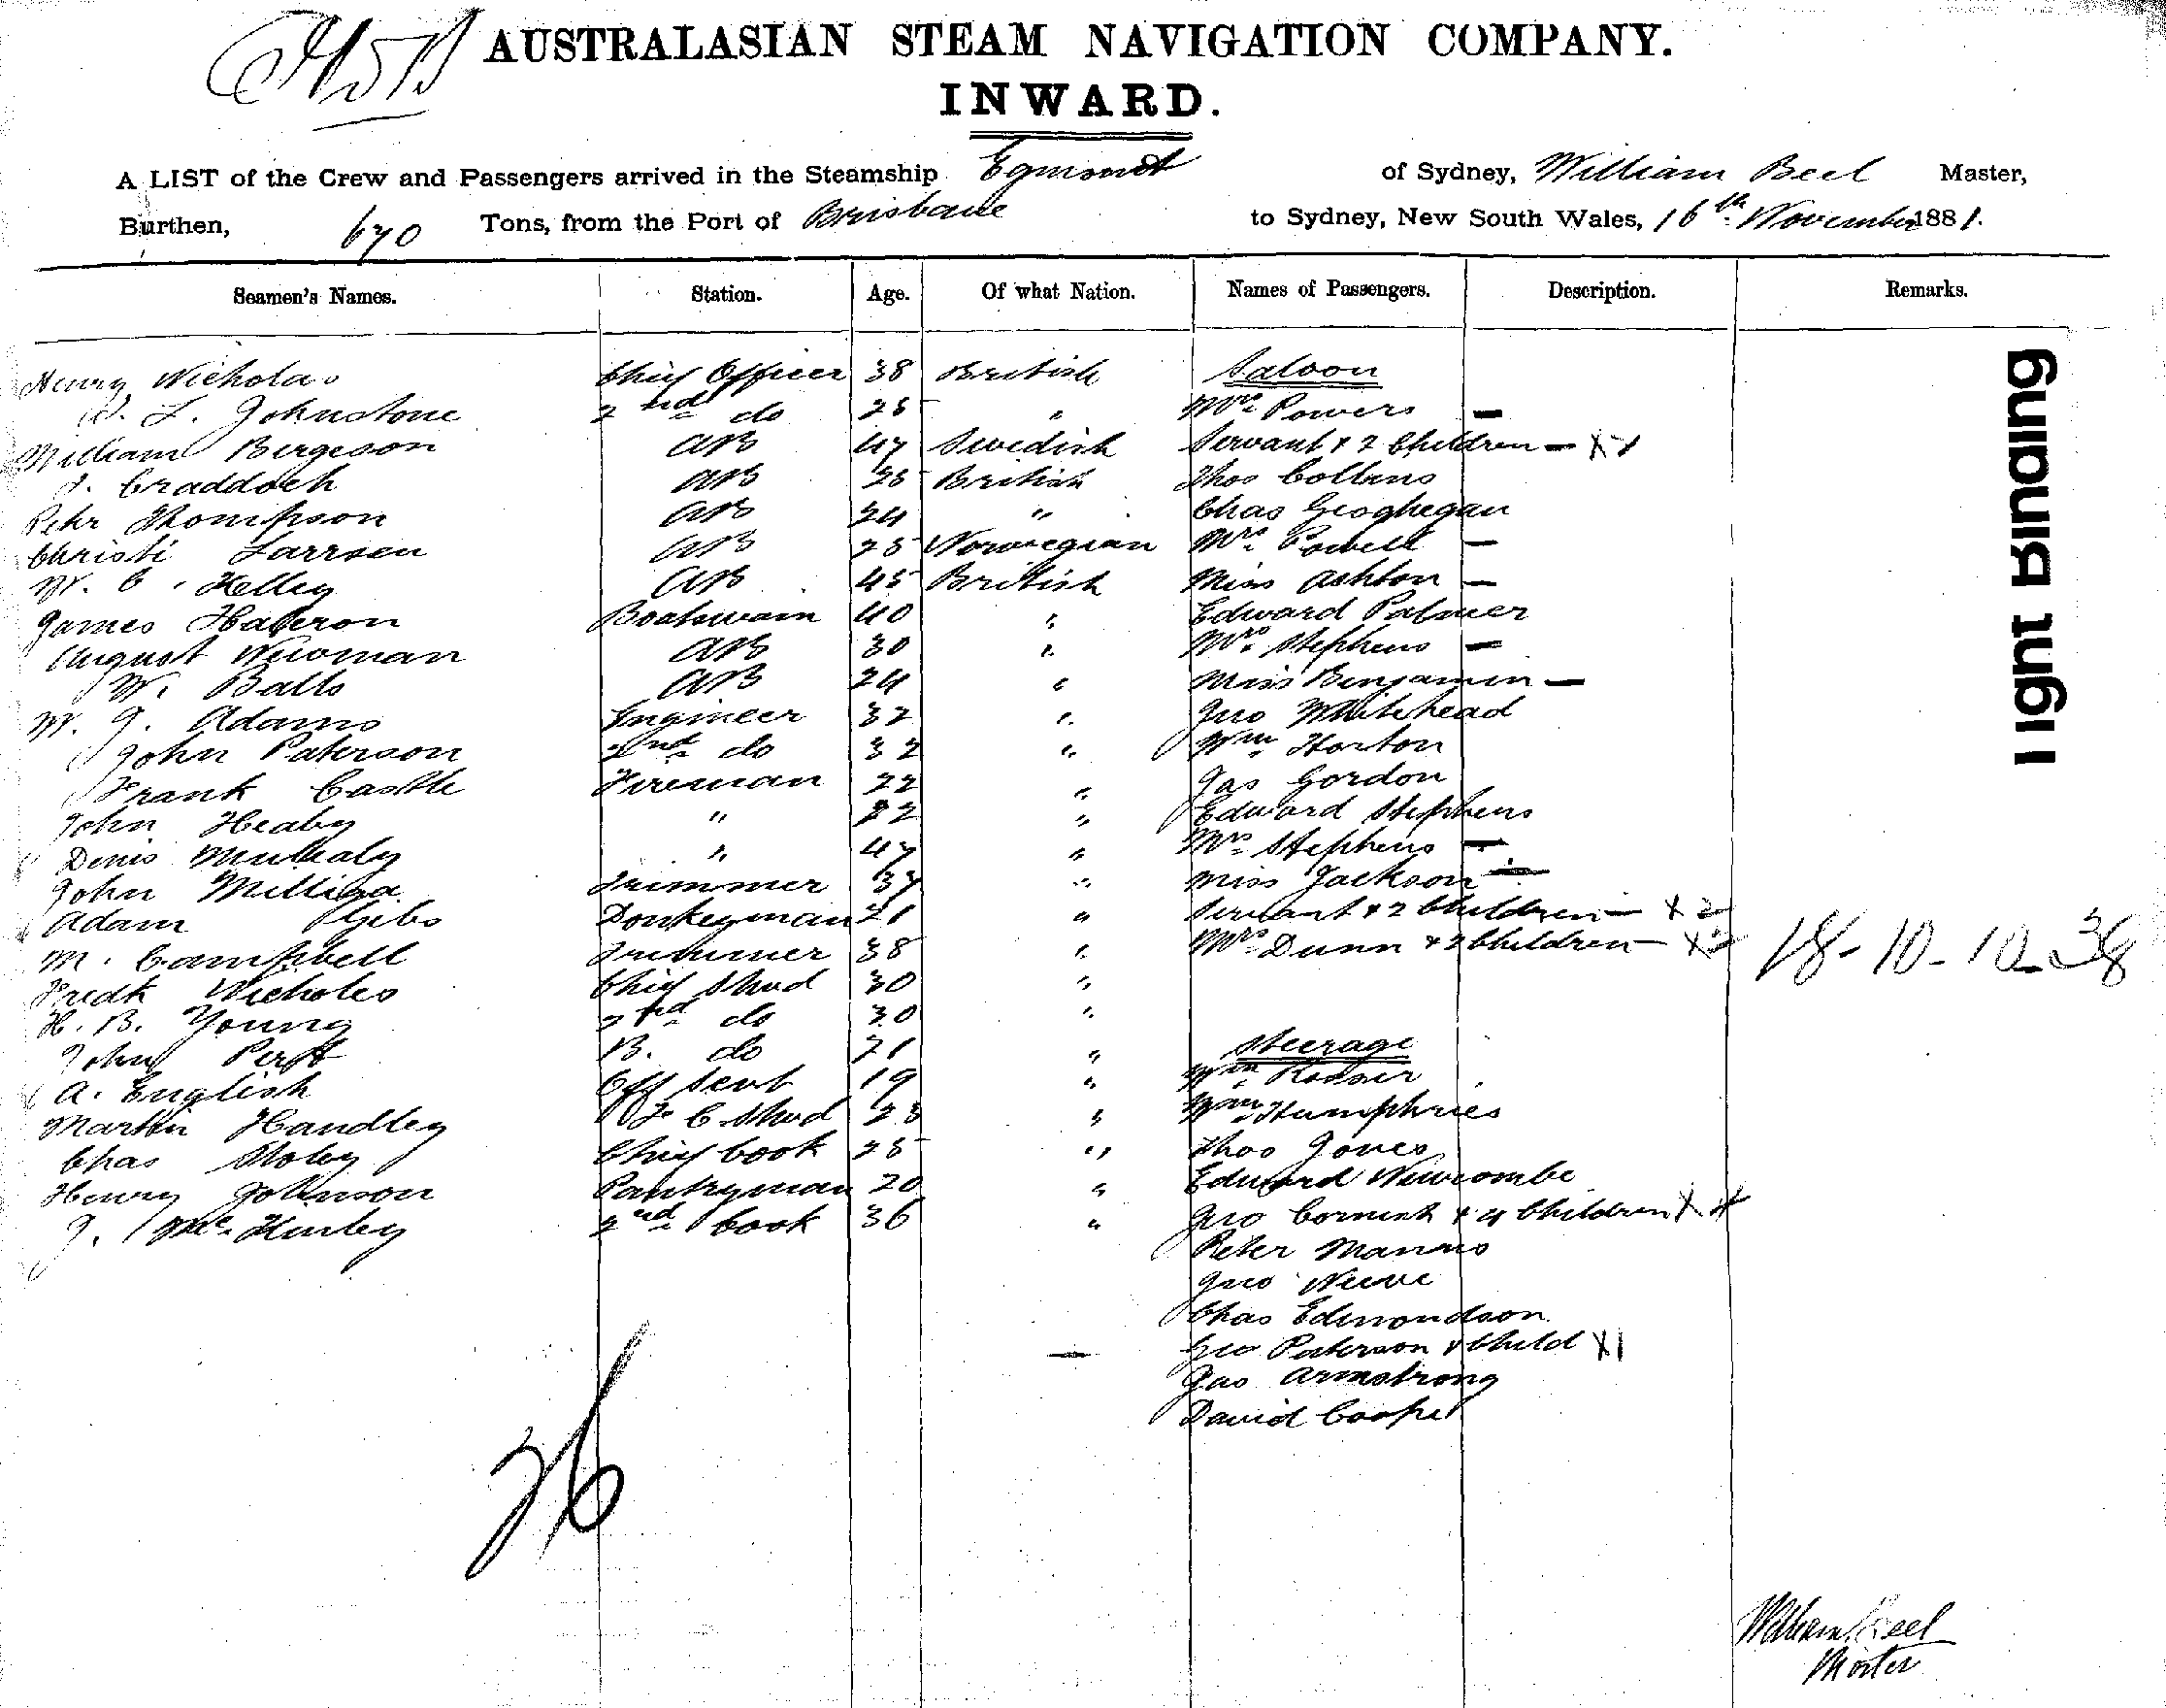 AUSTRALASIAN STEAM NAVIGATION COMPANY.
INWARD.
A LIST of the Crew and Passengers arrived in the Steamship Egmont of Sydney, William Beel Master,
Burthen, 670 Tons, from the Port of Brisbane to Sydney, New South Wales, 16th November 1881.
Seamen's Names. Station. Age. Of what Nation. Names of Passengers. Description. Remarks.
Henry Nicholas Chief Officer 38 British Saloon
L. Johnstone 2nd do 25 " Mrs Powers —
William Bergeson AB 47 Swedish Servant & 2 Children —
J. Craddock AB 25 British Thos Collins
Petr Thompson AB 24 " Chas Geoghegan
Christi Larrsen AB 25 Norwegian Mrs Powell —
W. C. Kelley AB 45 British Miss Ashton —
James Haleron Boatswain 40 " Edward Palmer
August Newman AB 30 " Mrs Stephens —
W. Balls AB 24 " Miss Benjamin —
W. J. Adams Engineer 32 " Geo Whitehead
John Paterson 2nd do 32 " Wm Horton
Frank Castle Fireman 22 " Jas Gordon
John Heaby " 22 " Edward Stephens
Denis Mulhaly " 47 " Mrs Stephens —
John Trimmer 37 " Miss Jackson —
Adam Gibs Donkeyman 21 " Servant & 2 Children — X 2
M. Campbell Trimmer 38 " Mrs Dunn & 2 Children — X 2
18-10-10-38
Fredk Nicholes Chief Stwd 30 "
H. B. Young 2nd do 30 "
John B. do 21 " Steerage
A. English Off Sevt 19 " Wm Rosser
Martin Handley F. C. Stwd 23 " Wm Humphries
Chas Chief Cook 25 " Thos Jones
Henry Johnson Pantryman 20 " Edward Newcombe
J. Mc. Hurley 2nd Cook 36 " Geo Cornish & 4 Children X 4
Peter Manns
Geo Neeve
Chas Edmondson
Geo Paterson & Child X 1
Jas Armstrong
David Cooper
26
William Beel
Master
Tight Binding